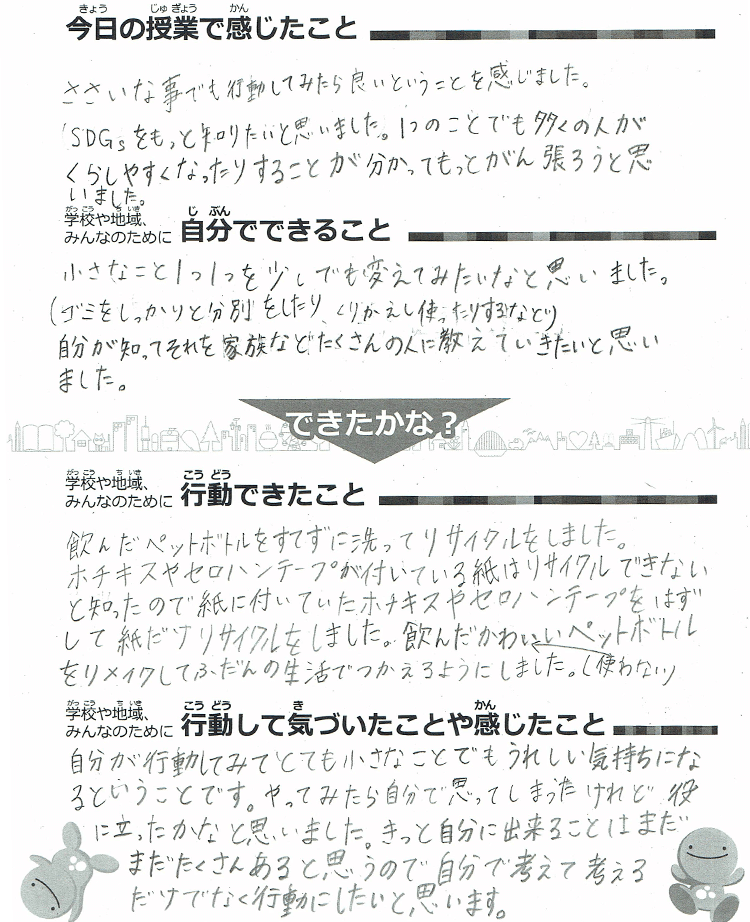 きょう じゅぎょう かん
今日の授業で感じたこと
ささいな事でも行動してみたら良いということを感じました。
SDGsをもっと知りたいと思いました。1つのことでも多くの人が
くらしやすくなったりすることが分かってもっとがん張ろうと思
いました。
がっこう ちいき
学校や地域、
みんなのために
じぶん
自分でできること
小さなこと1つ1つを少しでも変えてみたいなと思いました。
(ゴミをしっかりと分別をしたり、くりかえし使ったりするなど)
自分が知ってそれを家族などたくさんの人に教えていきたいと思い
ました。
できたかな？
がっこう ちいき
学校や地域、
みんなのために
こうどう
行動できたこと
飲んだペットボトルをすてずに洗ってリサイクルをしました。
ホチキスやセロハンテープが付いている紙はリサイクルできない
と知ったので紙に付いていたホチキスやセロハンテープをはず
して紙だけリサイクルをしました。飲んだかわいいペットボトル
をリメイクしてふだんの生活でつかえるようにしました。(使わない)
がっこう ちいき
学校や地域、
みんなのために
こうどう き かん
行動して気づいたことや感じたこと
自分が行動してみてとても小さなことでもうれしい気持ちにな
るということです。やってみたら自分で思ってしまったけれど役
に立ったかなと思いました。きっと自分に出来ることはまだ
まだたくさんあると思うので自分で考えて考える
だけでなく行動にしたいと思います。